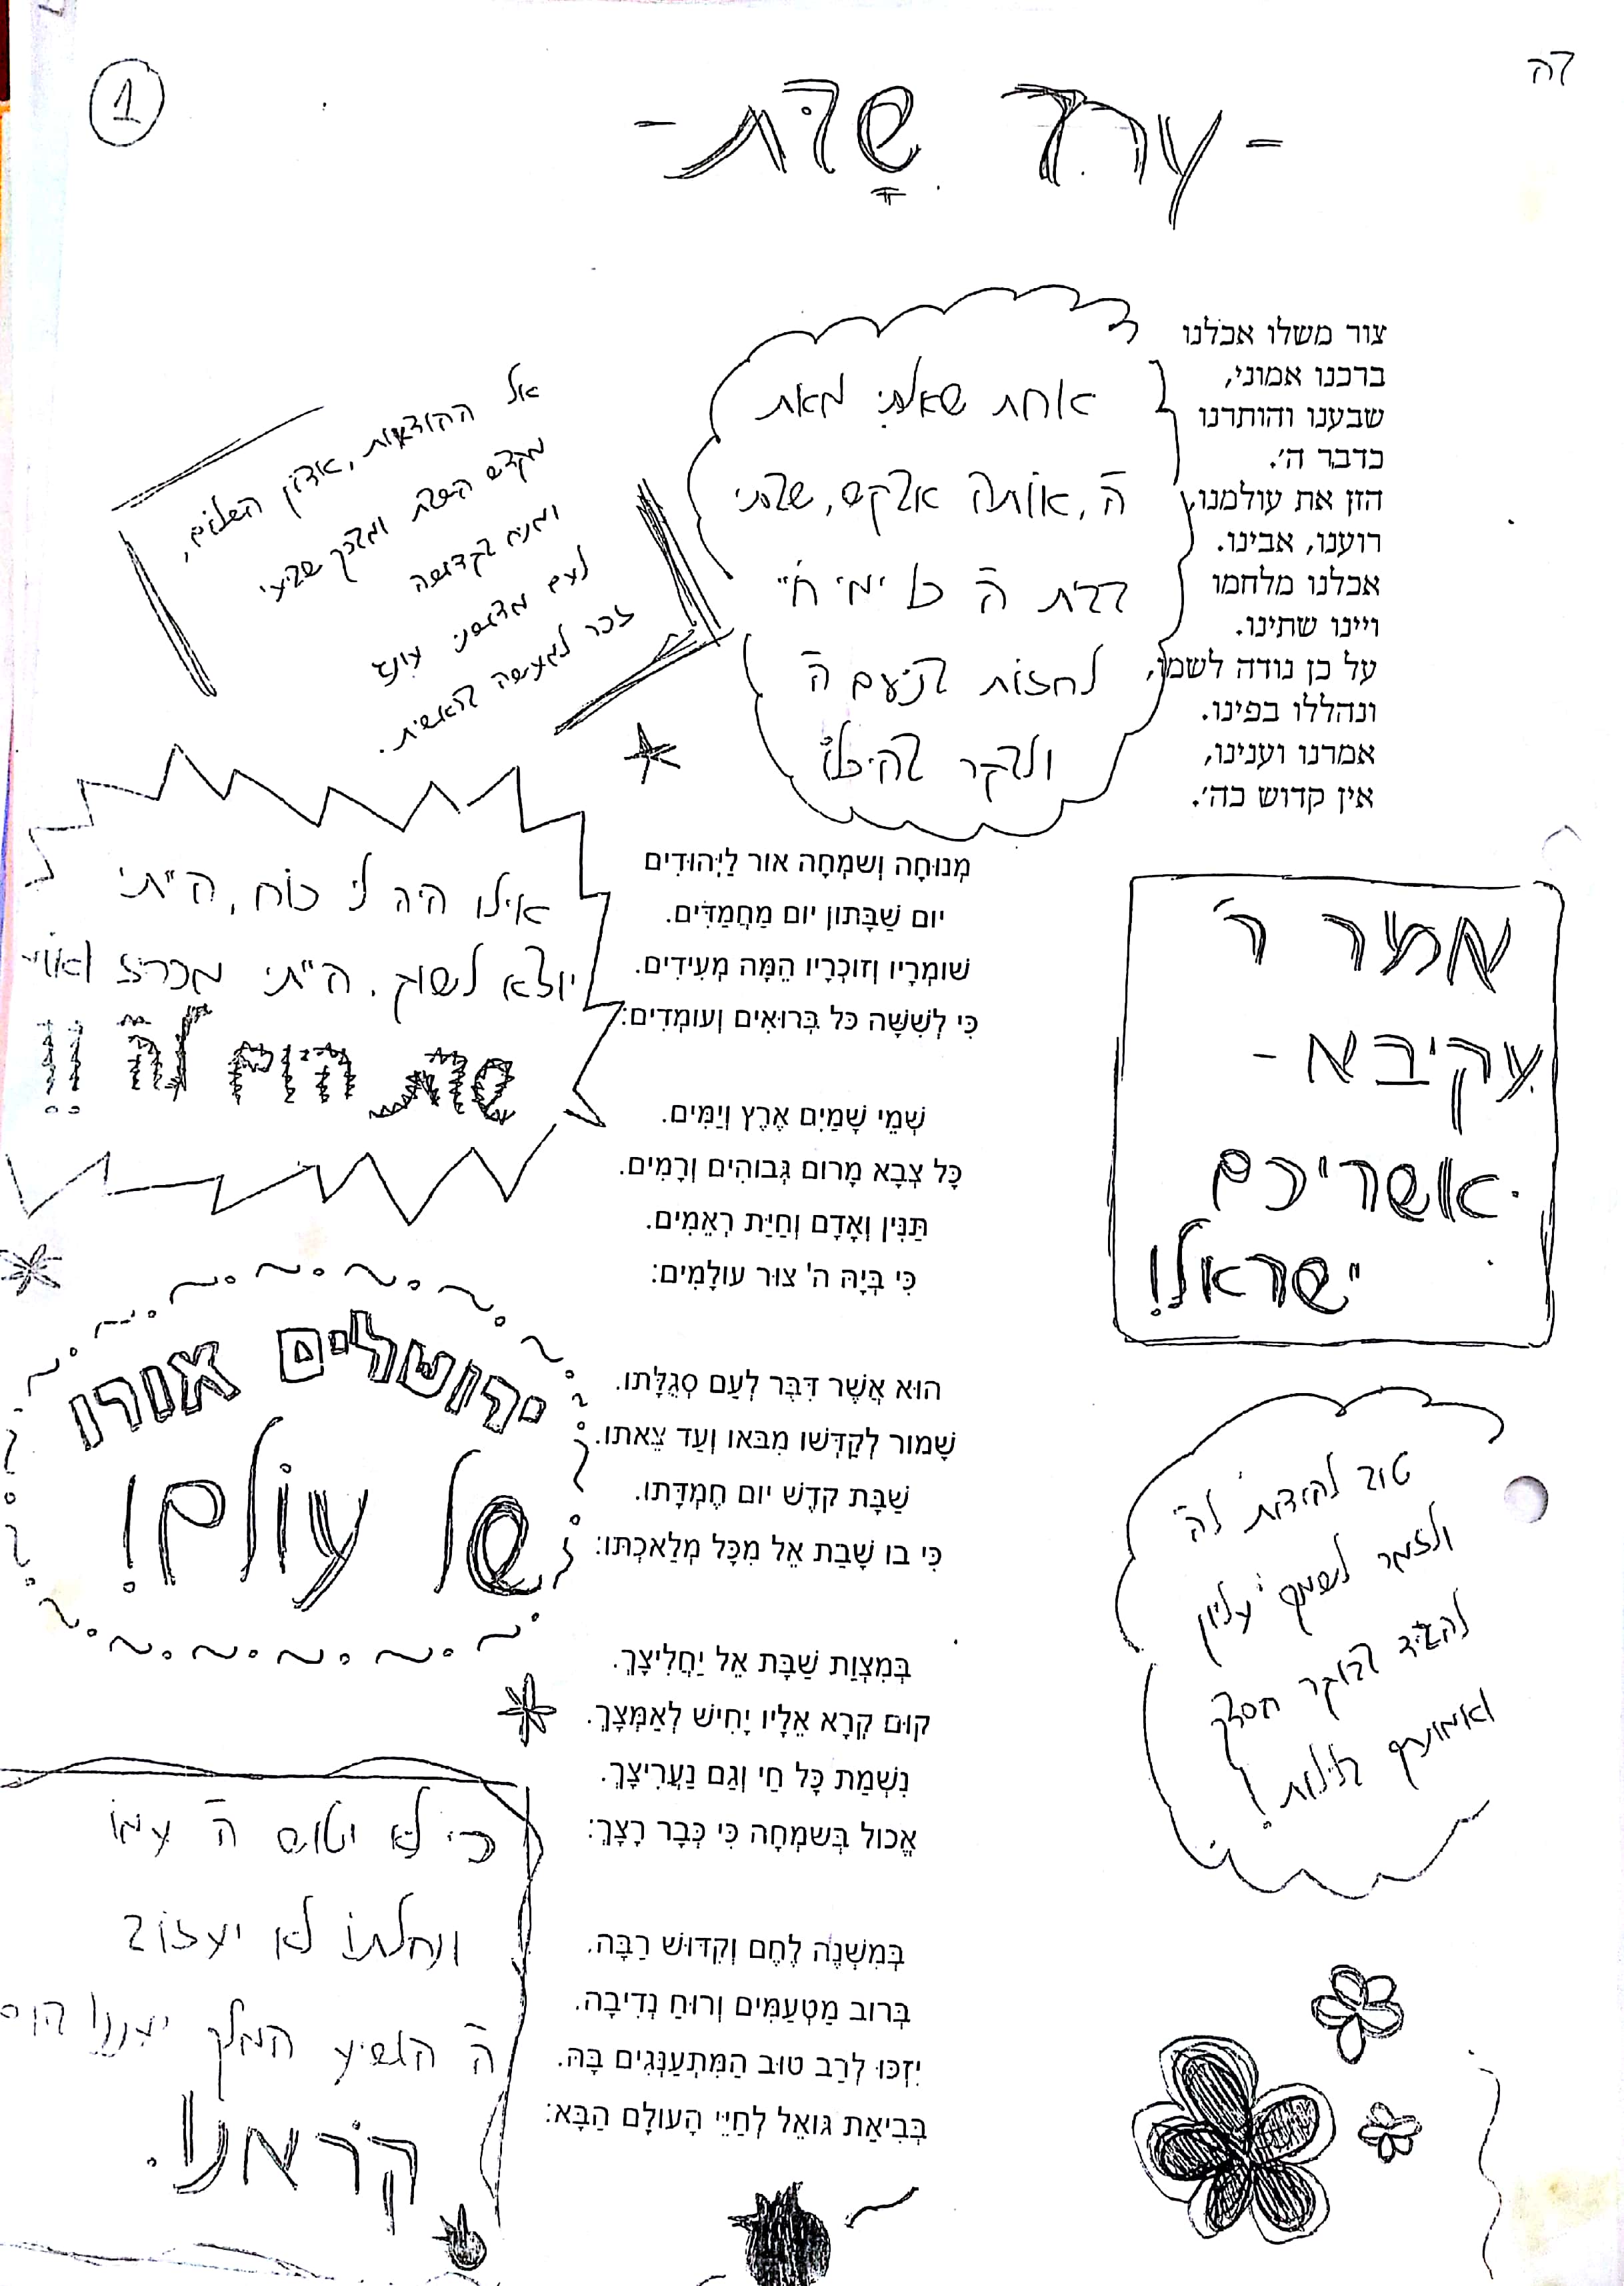 בה
1
- ערב שַׁבת -
צור משלו אכלנו
ברכנו אמוני,
שבענו והותרנו
כדבר ה׳.
הזן את עולמנו,
רוענו, אבינו.
אכלנו מלחמו
ויינו שתינו.
על כן נודה לשמו,
ונהללו בפינו.
אמרנו וענינו,
אין קדוש כה׳.
אחת שאלתי מאת
ה', אותה אבקש, שבתי
בבית ה' כל ימי חיי
לחזות בנועם ה'
ולבקר בהיכלו
אל ההודאות, אדון השלום,
מקדש השבת ומברך שביעי
ומניח בקדושה
לעם מדושני עונג
זכר למעשה בראשית.
אילו היה לי כוח, הייתי
יוצא לשוק. הייתי מכריז ואומר
שבת היום לה' !!
מְנוּחָה וְשִׂמְחָה אור לַיְּהוּדִים
יום שַׁבָּתון יום מַחֲמַדִּים.
שׁומְרָיו וְזוכְרָיו הֵמָּה מְעִידִים.
כִּי לְשִׁשָּׁה כּל בְּרוּאִים וְעומְדִים:
שְׁמֵי שָׁמַיִם אֶרֶץ וְיַמִּים.
כָּל צְבָא מָרום גְּבוהִים וְרָמִים.
תַּנִּין וְאָדָם וְחַיַּת רְאֵמִים.
כִּי בְּיָהּ ה' צוּר עולָמִים:
הוּא אֲשֶׁר דִּבֶּר לְעַם סְגֻלָּתו.
שָׁמור לְקַדְּשׁו מִבּאו וְעַד צֵאתו.
שַׁבָּת קדֶשׁ יום חֶמְדָּתו.
כִּי בו שָׁבַת אֵל מִכָּל מְלַאכְתּו:
בְּמִצְוַת שַׁבָּת אֵל יַחֲלִיצָךְ.
קוּם קְרָא אֵלָיו יָחִישׁ לְאַמְּצָךְ.
נִשְׁמַת כָּל חַי וְגַם נַעֲרִיצָךְ.
אֱכול בְּשִׂמְחָה כִּי כְּבָר רָצָךְ:
בְּמִשְׁנֶה לֶחֶם וְקִדּוּשׁ רַבָּה.
בְּרוב מַטְעַמִּים וְרוּחַ נְדִיבָה.
יִזְכּוּ לְרַב טוּב הַמִּתְעַנְּגִים בָּהּ.
בְּבִיאַת גּואֵל לְחַיֵּי הָעולָם הַבָּא:
אמר ר'
עקיבא -
אשריכם
ישראל!
ירושלים אורו
של עולם!
טוב להודות לה'
ולזמר לשמך עליון
להגיד בבוקר חסדך
ואמונתך בלילות!
כי לא יטוש ה' עמו
ונחלתו לא יעזוב
ה' הושיע המלך יעננו ביום
קראנו.